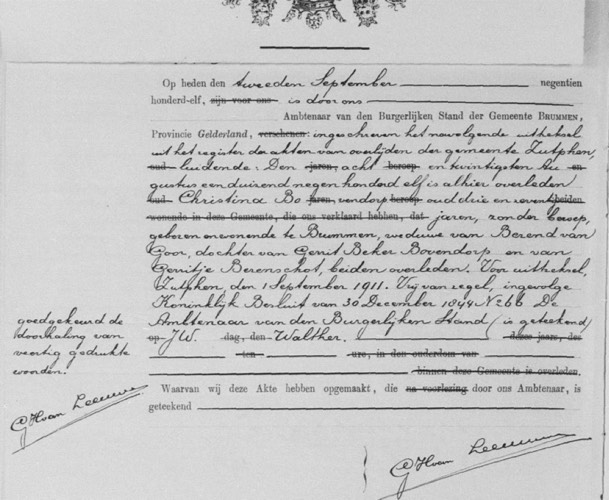 Op heden den tweeden September negentien
honderd-elf, zijn voor ons is door ons
Ambtenaar van den Burgerlijken Stand der Gemeente BRUMMEN,
Provincie Gelderland, verschenen: ingeschreven het navolgende uittreksel
uit het register der akten van overlijden der gemeente Zutphen,
oud luidende: Den jaren, acht beroep en twintigsten Au en
gustus een duizend negen honderd elf is alhier overleden
oud Christina Bo jaren, vendorp beroep oud drie en zeventig beiden
wonende in deze Gemeente, die ons verklaard hebben, dat jaren, zonder beroep,
geboren en wonende te Brummen, weduwe van Berend van
Goor, dochter van Gerrit Beker Bovendorp en van
Gerritje Berenschot, beiden overleden. Voor uittreksel,
Zutphen den 1 September 1911. Vrij van zegel, ingevolge
Koninklijk Besluit van 30 December 1844 No 66 De
Ambtenaar van den Burgerlijken Stand (is geteekend)
op J.W. dag, den Walther. dezes jaars, des
ten ure, in den ouderdom van
binnen deze Gemeente is overleden.
Waarvan wij deze Akte hebben opgemaakt, die na voorlezing door ons Ambtenaar, is
geteekend
goedgekeurd de
doorhaling van
veertig gedrukte
woorden.
GHvan Leeuwen
GHvan Leeuwen